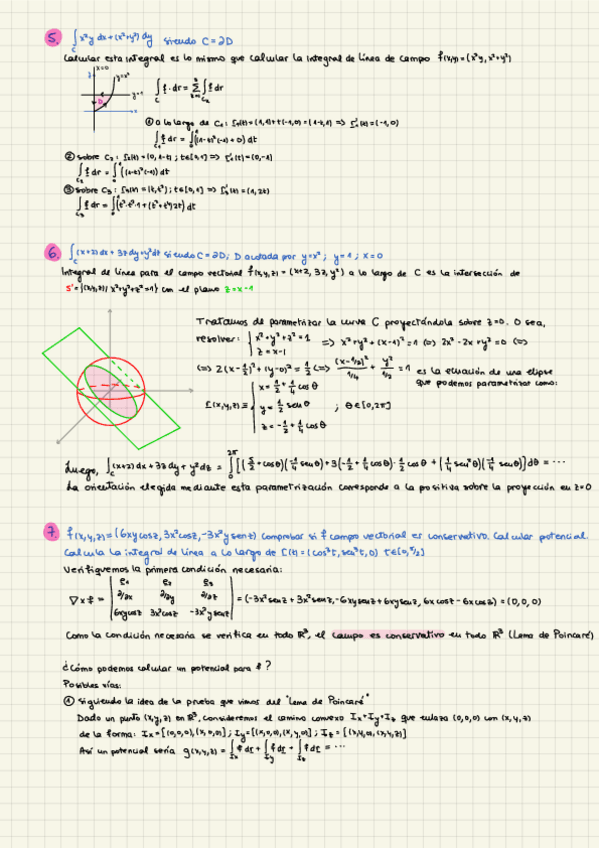 5. ∫_C x²y dx + (x²+y²) dy siendo C = ∂D
Calcular esta integral es lo mismo que calcular la integral de línea de campo f(x,y) = (x²y, x²+y²)
x=0
y=x²
y=1
D
∫_C f·dr = Σ ∫ f dr
① a lo largo de C₁: r₁(t) = (1,1)+t(-1,0) = (1-t,1) => r₁'(t) = (-1,0)
∫_C₁ f dr = ∫₀¹ ((1-t)²(-1)+0) dt
② sobre C₂: r₂(t) = (0,1-t); t∈[0,1] => r₂'(t) = (0,-1)
∫_C₂ f dr = ∫₀¹ ((1-t)²(-1)) dt
③ sobre C₃: r₃(t) = (t,t²); t∈[0,1] => r₃'(t) = (1,2t)
∫_C₃ f dr = ∫₀¹ (t²·t²·1+(t²+t⁴)2t) dt
6. ∫_C (x+z) dx + 3z dy + y² dz siendo C = ∂D; D acotada por y=x²; y=1; x=0
Integral de línea para el campo vectorial f(x,y,z) = (x+z, 3z, y²) a lo largo de C es la intersección de
S = {(x,y,z)/ x²+y²+z²=1} con el plano z=x-1
Tratamos de parametrizar la curva C proyectándola sobre z=0. O sea,
resolver: { x²+y²+z²=1 z=x-1 => x²+y²+(x-1)²=1 <=> 2x²-2x+y²=0 <=>
<=> 2(x-1/2)²+(y-0)²=1/2 <=> (x-1/2)²/(1/4) + y²/(1/2) = 1 es la ecuación de una elipse
que podemos parametrizar como:
r(x,y,z) ≡ { x = 1/2 + 1/4 cosθ
y = 1/2 senθ ; θ∈[0,2π]
z = -1/2 + 1/4 cosθ
Luego, ∫_C (x+z) dx + 3z dy + y² dz = ∫₀^2π [(5/2+cosθ)(-1/4 senθ)+3(-1/2+1/4 cosθ)·1/2 cosθ + (1/4 sen²θ)(-1/4 senθ)] dθ = ...
La orientación elegida mediante esta parametrización corresponde a la positiva sobre la proyección en z=0
7. f(x,y,z) = (6xy cosz, 3x² cosz, -3x²y senz) comprobar si f campo vectorial es conservativo. Calcular potencial.
Calcula la integral de línea a lo largo de r(t) = (cos³t, sen³t, 0) t∈[0,π/2]
Verifiquemos la primera condición necesaria:
∇×f = | e₁ e₂ e₃
∂/∂x ∂/∂y ∂/∂z
6xycosz 3x²cosz -3x²y senz | = (-3x²senz+3x²senz, -6xysenz+6xysenz, 6xcosz-6xcosz) = (0,0,0)
Como la condición necesaria se verifica en todo ℝ³, el campo es conservativo en todo ℝ³ (Lema de Poincaré)
¿Cómo podemos calcular un potencial para f?
Posibles vías:
① Siguiendo la idea de la prueba que vimos del "Lema de Poincaré"
Dado un punto (x,y,z) en ℝ³, consideremos el camino convexo Ix+Iy+Iz que enlaza (0,0,0) con (x,y,z)
de la forma: Ix=[(0,0,0),(x,0,0)]; Iy=[(x,0,0),(x,y,0)]; Iz=[(x,y,0),(x,y,z)]
Así un potencial sería g(x,y,z) = ∫_Ix f dr + ∫_Iy f dr + ∫_Iz f dr = ...